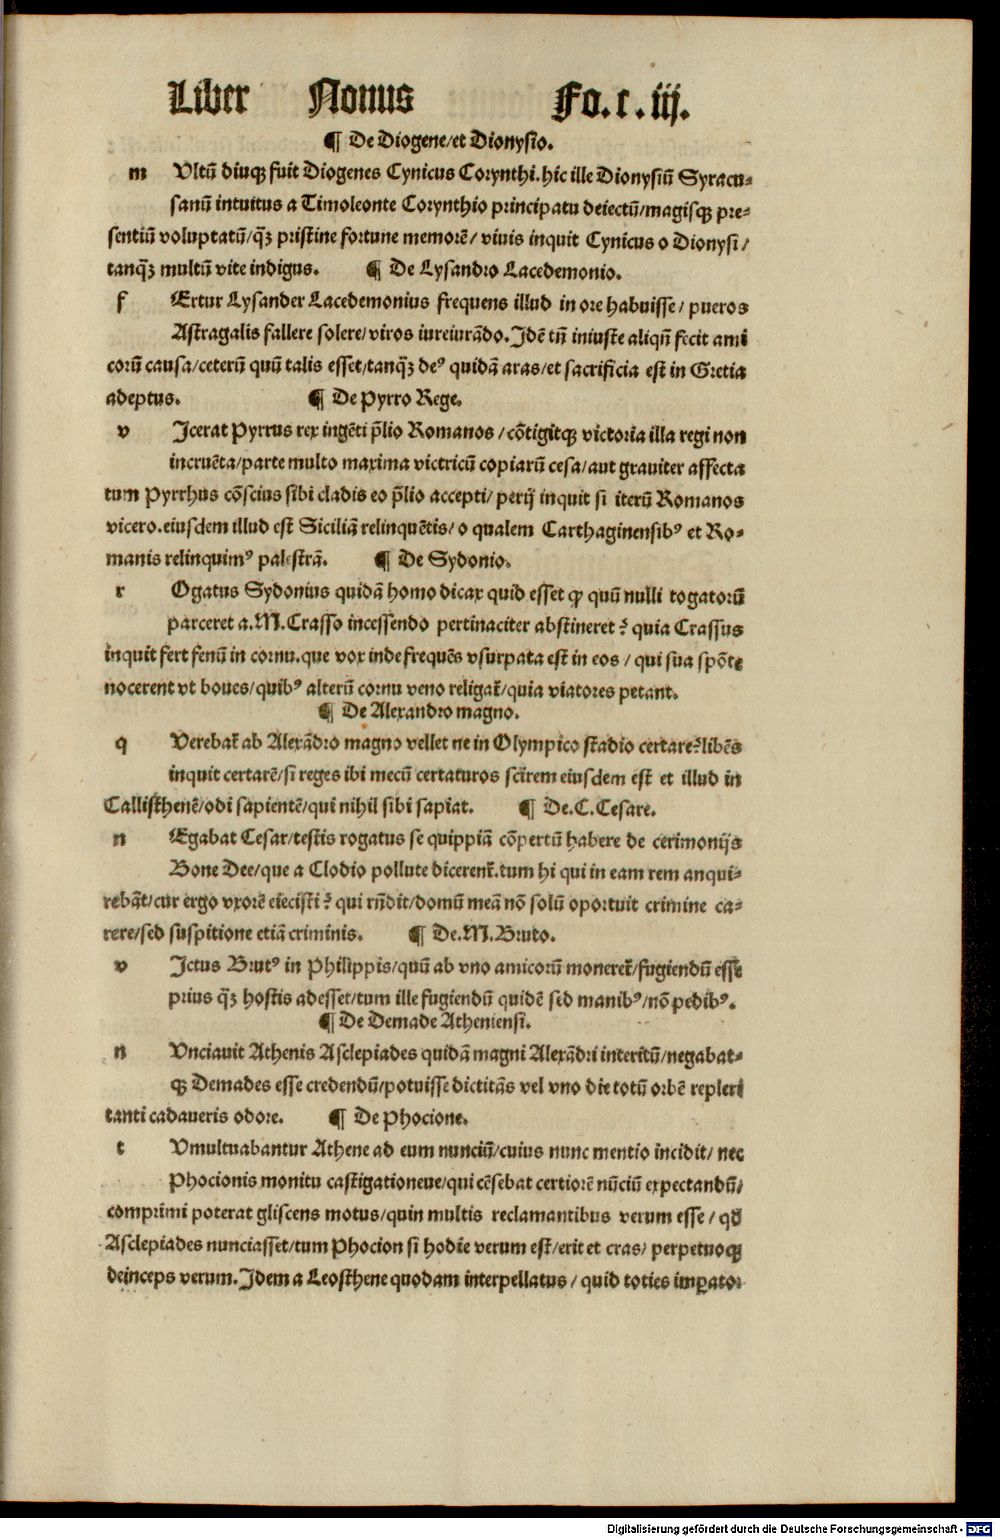 Liber Nonus Fo.c.iij.
¶ De Diogene/et Dionysio.
m Vltū diuqꝫ fuit Diogenes Cynicus Corynthi.hic ille Dionysiū Syracu⸗
sanū intuitus a Timoleonte Corynthio principatu deiectū/magisqꝫ pre⸗
sentiū voluptatū/q̄ꝫ pristine fortune memorē/ viuis inquit Cynicus o Dionysi/
tanq̄ꝫ multū vite indigus. ¶ De Lysandro Lacedemonio.
f Ertur Lysander Lacedemonius frequens illud in ore habuisse/ pueros
Astragalis fallere solere/viros iureiurādo.Idē tn̄ iniuste aliqn̄ fecit ami
corū causa/ceterū quū talis esset/tanq̄ꝫ deꝰ quidā aras/et sacrificia est in Gretia
adeptus. ¶ De Pyrro Rege.
v Icerat Pyrrus rex ingēti p̄lio Romanos /cōtigitqꝫ victoria illa regi non
incruēta/parte multo maxima victricū copiarū cesa/aut grauiter affecta
tum Pyrrhus cōscius sibi cladis eo p̄lio accepti/ perij inquit si iterū Romanos
vicero.eiusdem illud est Siciliā relinquētis/o qualem Carthaginensibꝰ et Ro⸗
manis relinquimꝰ palestrā. ¶ De Sydonio.
r Ogatus Sydonius quidā homo dicax quid esset ꝙ quū nulli togatorū
parceret a.M.Crasso incessendo pertinaciter abstineret ? quia Crassus
inquit fert fenū in cornu.que vox inde frequēs vsurpata est in eos / qui sua spōte
nocerent vt boues/quibꝰ alterū cornu veno religat̄/quia viatores petant.
¶ De Alexandro magno.
q Verebat̄ ab Alexādro magno vellet ne in Olympico stadio certare?libēs
inquit certarē/si reges ibi mecū certaturos scirem eiusdem est et illud in
Callisthenē/odi sapientē/qui nihil sibi sapiat. ¶ De.C.Cesare.
n Egabat Cesar/testis rogatus se quippiā cōpertū habere de cerimonijs
Bone Dee/que a Clodio pollute dicerent̄.tum hi qui in eam rem anqui⸗
rebāt/cur ergo vxorē eiecisti ? qui rn̄dit/domū meā nō solū oportuit crimine ca⸗
rere/sed suspitione etiā criminis. ¶ De.M.Bruto.
v Ictus Brutꝰ in Philippis/quū ab vno amicorū moneret̄/fugiendū esse
prius q̄ꝫ hostis adesset/tum ille fugiendū quidē sed manibꝰ/nō pedibꝰ.
¶ De Demade Atheniensi.
n Vnciauit Athenis Asclepiades quidā magni Alexādri interitū/negabat⸗
qꝫ Demades esse credendū/potuisse dictitās vel vno die totū orbē repleri
tanti cadaueris odore. ¶ De Phocione.
t Vmultuabantur Athene ad eum nunciū/cuius nunc mentio incidit/ nec
Phocionis monitu castigationeue/qui cēsebat certiorē nūciū expectandū/
comprimi poterat gliscens motus/quin multis reclamantibus verum esse / qd̄
Asclepiades nunciasset/tum Phocion si hodie verum est/erit et cras/ perpetuoqꝫ
deinceps verum.Idem a Leosthene quodam interpellatus / quid toties imꝑator
Digitalisierung gefördert durch die Deutsche Forschungsgemeinschaft - DFG